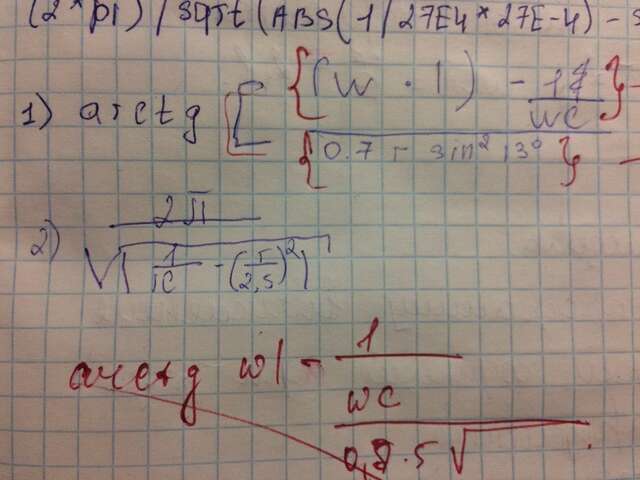 (2*pi) / sqrt (ABS(1/27E4*27E-4) -
1) arctg [ { (W · 1) - 1 / WC } / { 0.7 - sin² 13° } ]
2) 2π / √ | 1 / ic - (r / 2,5)² |
arctg wl - 1 / wc / · 5 √